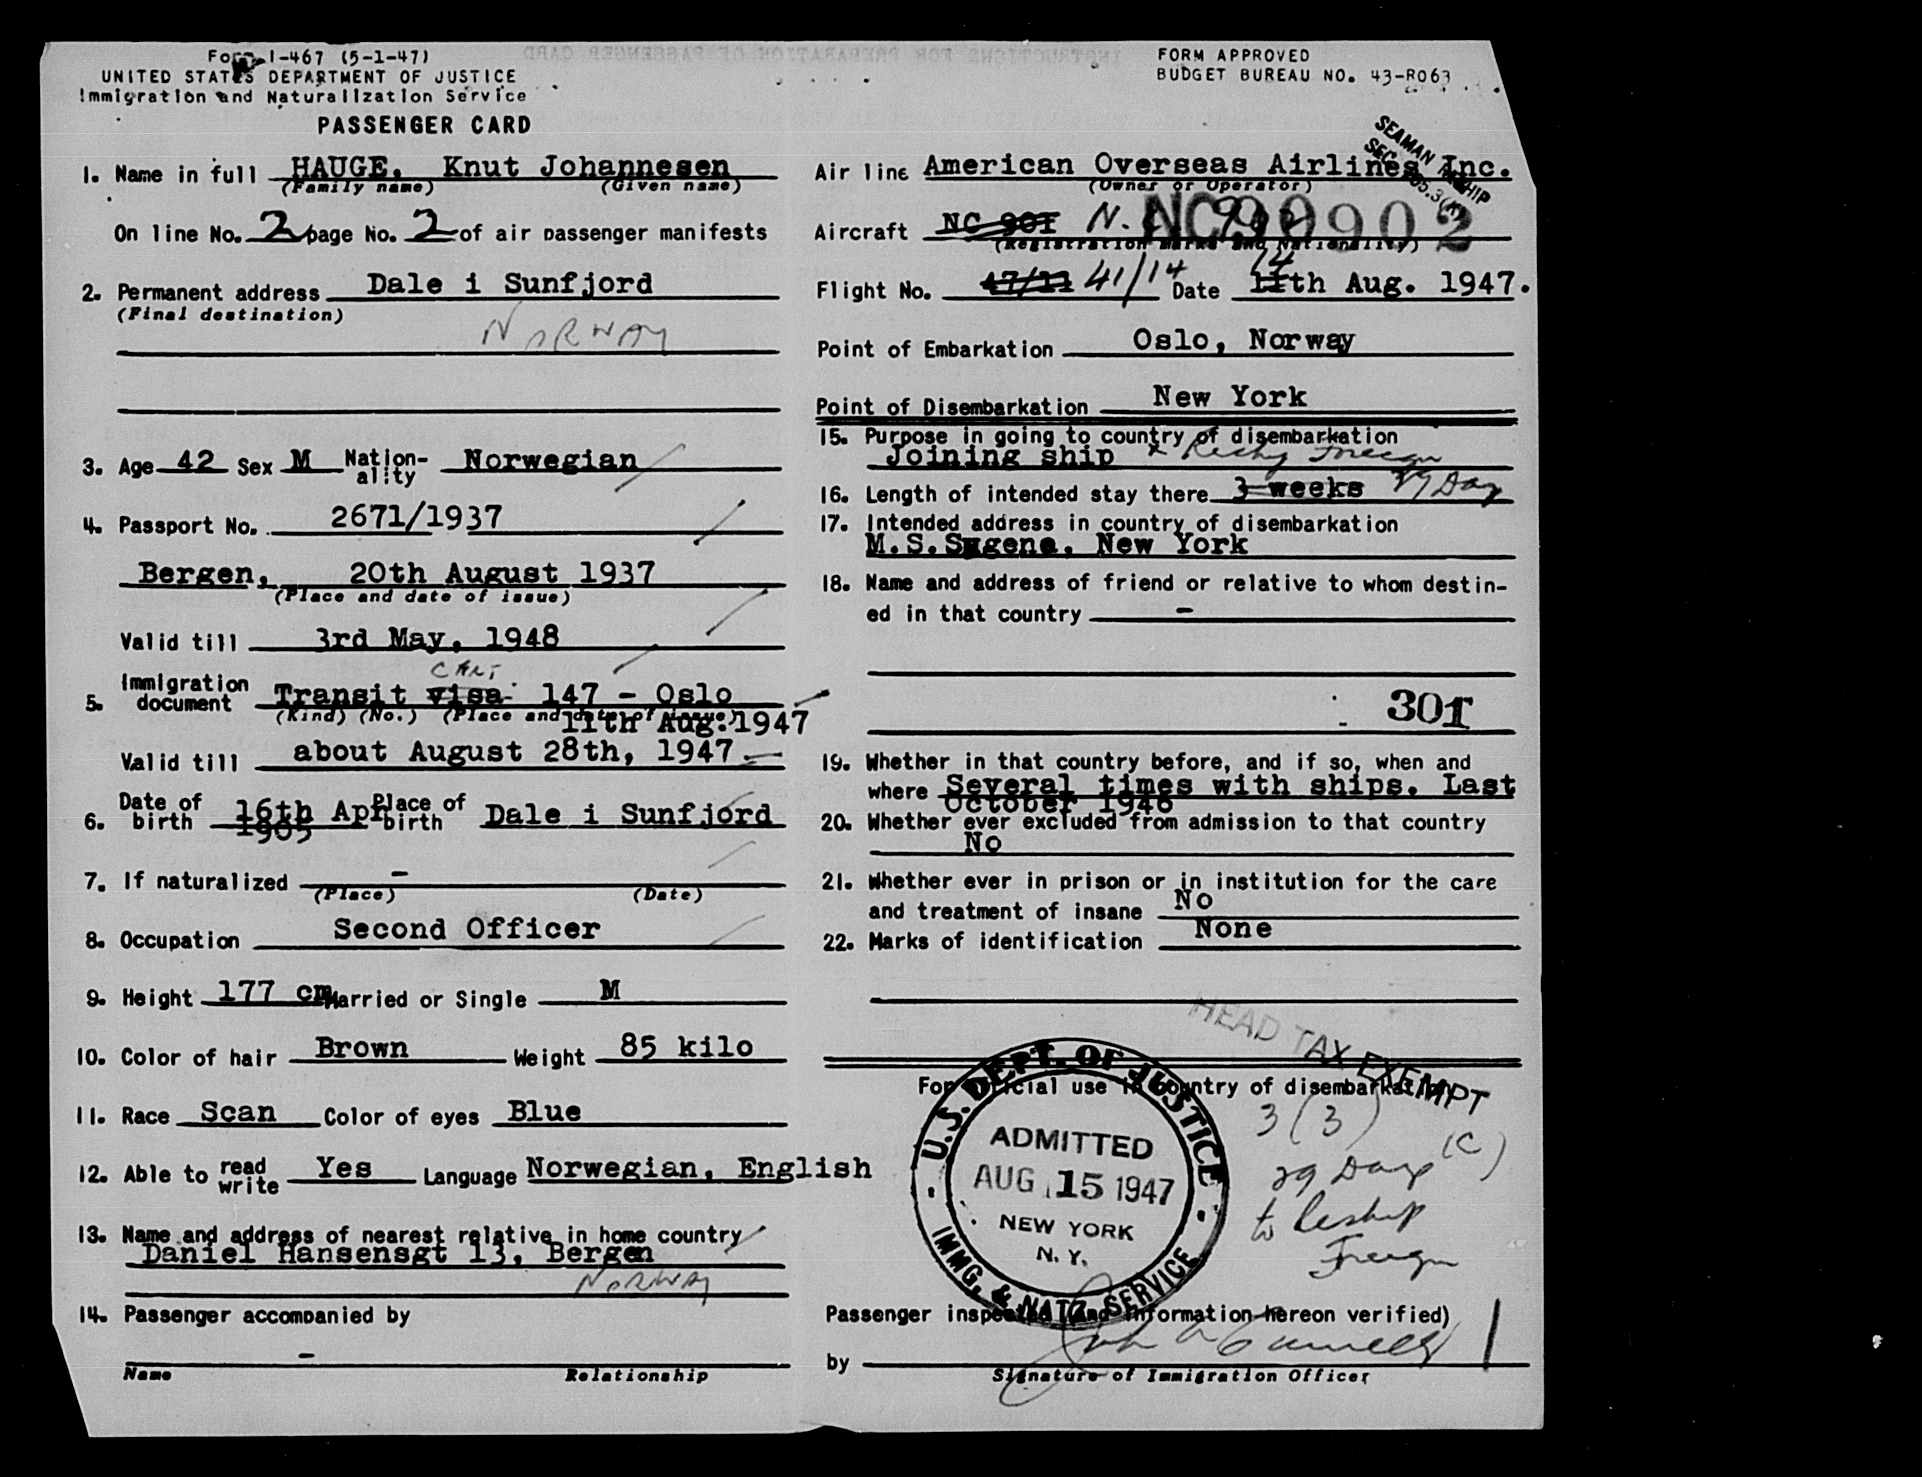 Form I-467 (5-1-47)
UNITED STATES DEPARTMENT OF JUSTICE
Immigration and Naturalization Service
PASSENGER CARD
FORM APPROVED
BUDGET BUREAU NO. 43-R063
1. Name in full HAUGE, Knut Johannesen
(Family name) (Given name)
On line No. 2 page No. 2 of air passenger manifests
2. Permanent address Dale i Sunfjord
(Final destination)
NORWAY
3. Age 42 Sex M Nation-ality Norwegian
4. Passport No. 2671/1937
Bergen, 20th August 1937
(Place and date of issue)
Valid till 3rd May, 1948
CERT
5. Immigration document Transit visa 147 - Oslo
(Kind) (No.) (Place and date of issue)
11th Aug. 1947
Valid till about August 28th, 1947.
6. Date of birth 16th Apr 1905 Place of birth Dale i Sunfjord
7. If naturalized -
(Place) (Date)
8. Occupation Second Officer
9. Height 177 cm Married or Single M
10. Color of hair Brown Weight 85 kilo
11. Race Scan Color of eyes Blue
12. Able to read write Yes Language Norwegian, English
13. Name and address of nearest relative in home country
Daniel Hansensgt 13, Bergen
NORWAY
14. Passenger accompanied by
-
Name Relationship
SEAMAN
Air line American Overseas Airlines Inc.
(Owner or Operator)
Aircraft NC 90902
(Registration marks and Nationality)
Flight No. 41/14 Date 14 11th Aug. 1947.
Point of Embarkation Oslo, Norway
Point of Disembarkation New York
15. Purpose in going to country of disembarkation
Joining ship Foreign
16. Length of intended stay there 3 weeks 29 Days
17. Intended address in country of disembarkation
M.S. New York
18. Name and address of friend or relative to whom destin-
ed in that country -
301
19. Whether in that country before, and if so, when and
where Several times with ships. Last
October 1946
20. Whether ever excluded from admission to that country
No
21. Whether ever in prison or in institution for the care
and treatment of insane No
22. Marks of identification None
HEAD TAX EXEMPT
For official use in country of disembarkation
3(3)
(C)
29 Days
to Reship
Foreign
U.S. DEPT. OF JUSTICE
ADMITTED
AUG 15 1947
NEW YORK
N. Y.
IMMG. & NATZ. SERVICE
Passenger inspected (and information hereon verified)
by
Signature of Immigration Officer